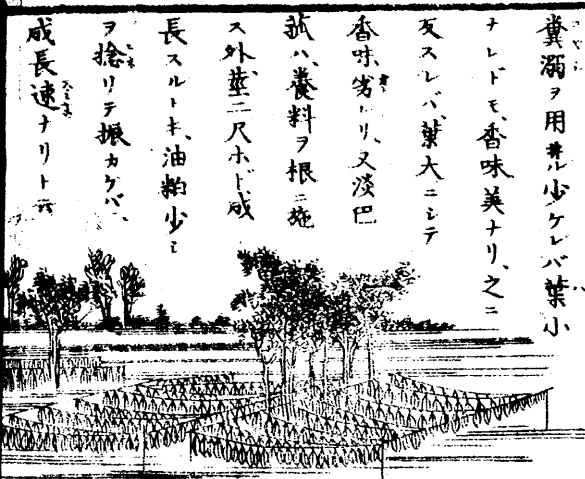 糞溺ヲ用井ル少ケレバ葉小
ナレドモ、香味美ナリ、之ニ
反スレバ、葉大ニシテ
香味劣レリ、又淡巴
菰ハ、養料ヲ根ニ施
ス外、莖二尺ホド成
長スルトキ、油粕少シ
ヲ捻リテ振カケバ、
成長速ナリト云